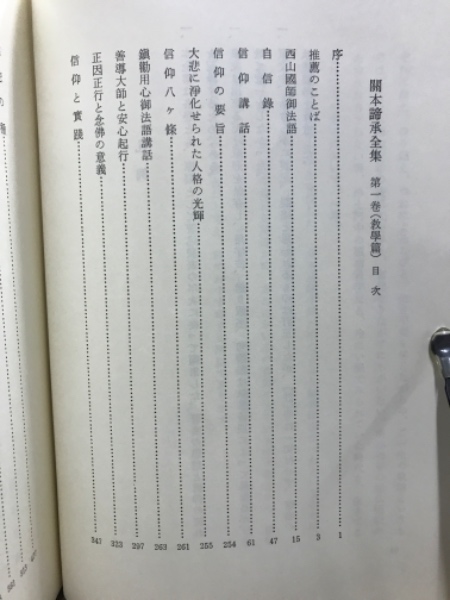 關本諦承全集 第一卷(教學篇) 目次
序 1
推薦のことば 3
西山國師御法語 15
自信錄 47
信仰講話 61
信仰の要旨 254
大悲に淨化せられた人格の光輝 255
信仰八ヶ條 261
鎭勸用心御法語講話 263
善導大師と安心起行 297
正因正行と念佛の意義 323
信仰と實踐 347